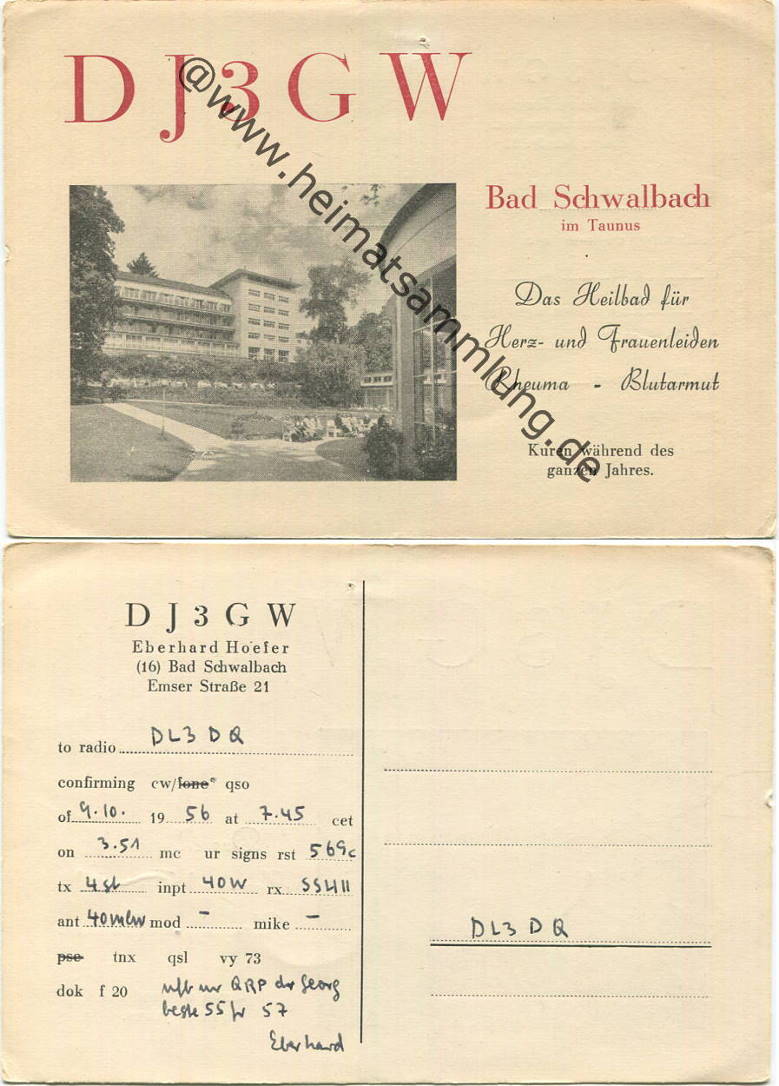 DJ3GW
@www.heimatsammlung.de
Bad Schwalbach
im Taunus
Das Heilbad für
Herz- und Frauenleiden
Rheuma - Blutarmut
Kuren während des
ganzen Jahres.
DJ3GW
Eberhard Hoefer
(16) Bad Schwalbach
Emser Straße 21
to radio DL3DQ
confirming cw/fone* qso
of 9.10. 19 56 at 7.45 cet
on 3.51 mc ur signs rst 569c
tx 4st inpt 40W rx SSH11
ant 40mlw mod - mike -
pse tnx qsl vy 73
dok f 20 ur QRP dr Georg
beste 55 fr 57
Eberhard
DL3DQ